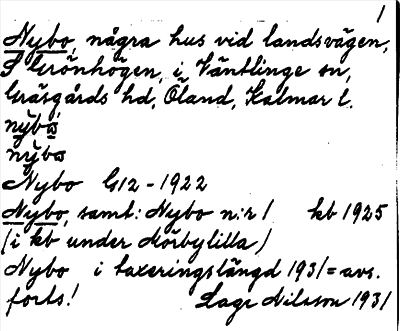 1
Nybo, några hus vid landsvägen,
S Grönhögen, i Ventlinge sn,
Gräsgårds hd, Öland, Kalmar l.
nybo
nybo
Nybo G12 - 1922
Nybo, saml: Nybo n:r 1 kb 1925
(i kb under Mörbylilla)
Nybo i taxeringslängd 1931 = avs.
forts! Lage Nilsson 1931